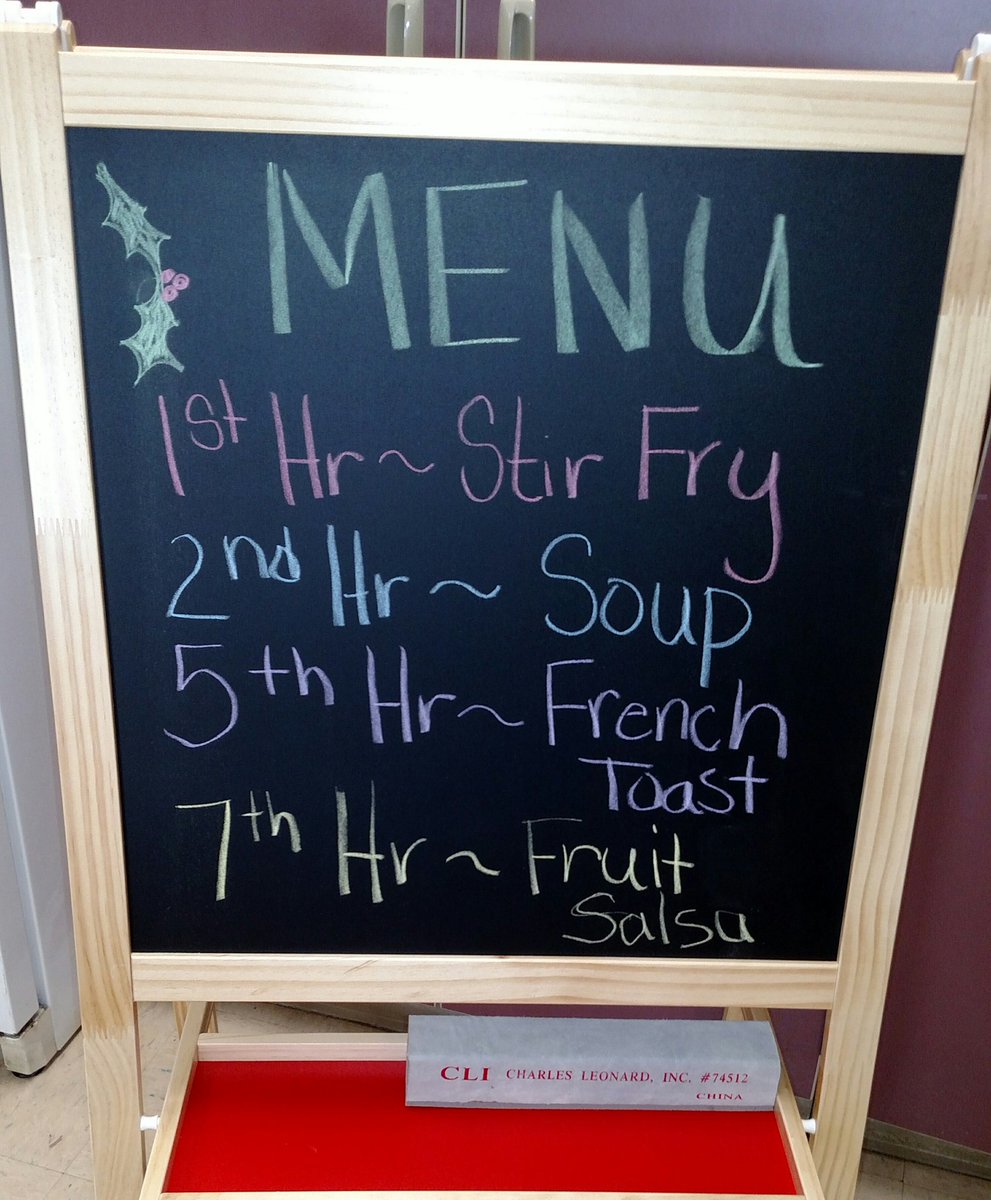 MENU
1st Hr~ Stir Fry
2nd Hr ~ Soup
5th Hr~ French
Toast
7th Hr ~ Fruit
Salsa
CLI CHARLES LEONARD, INC. #74512
CHINA